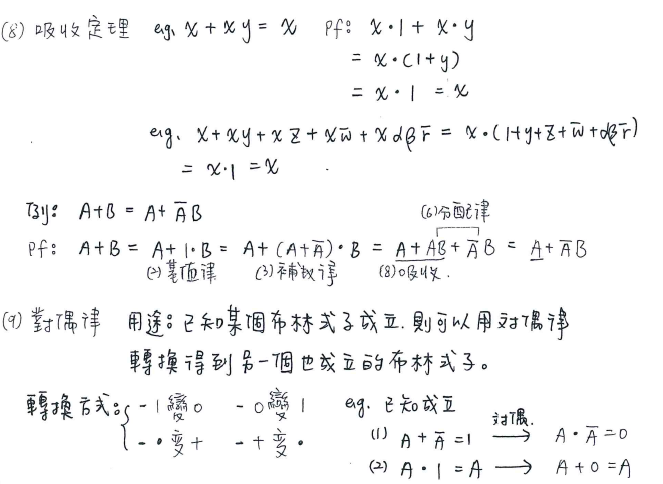 (8) 吸收定理 e.g. x + xy = x pf: x·1 + x·y
= x·(1+y)
= x·1 = x
e.g. x + xy + xz + xw̅ + xαβr̅ = x·(1+y+z+w̅+αβr̅)
= x·1 = x
例: A+B = A+A̅B
(6)分配律
pf: A+B = A+1·B = A+(A+A̅)·B = A+AB+A̅B = A+A̅B
(2)基值律 (3)補數律 (8)吸收.
(9) 對偶律 用途: 已知某個布林式子成立. 則可以用對偶律
轉換得到另一個也成立的布林式子。
轉換方式: { -1變0 -0變1 e.g. 已知成立
對偶.
- · 变 + - + 变 · (1) A+A̅=1 → A·A̅=0
(2) A·1=A → A+0=A